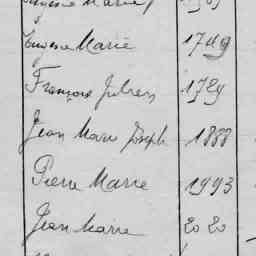 Marie
Eugène Marie 1749
François Julien 1729
Jean Marie Joseph 1888
Pierre Marie 1993
Jean Marie 2020